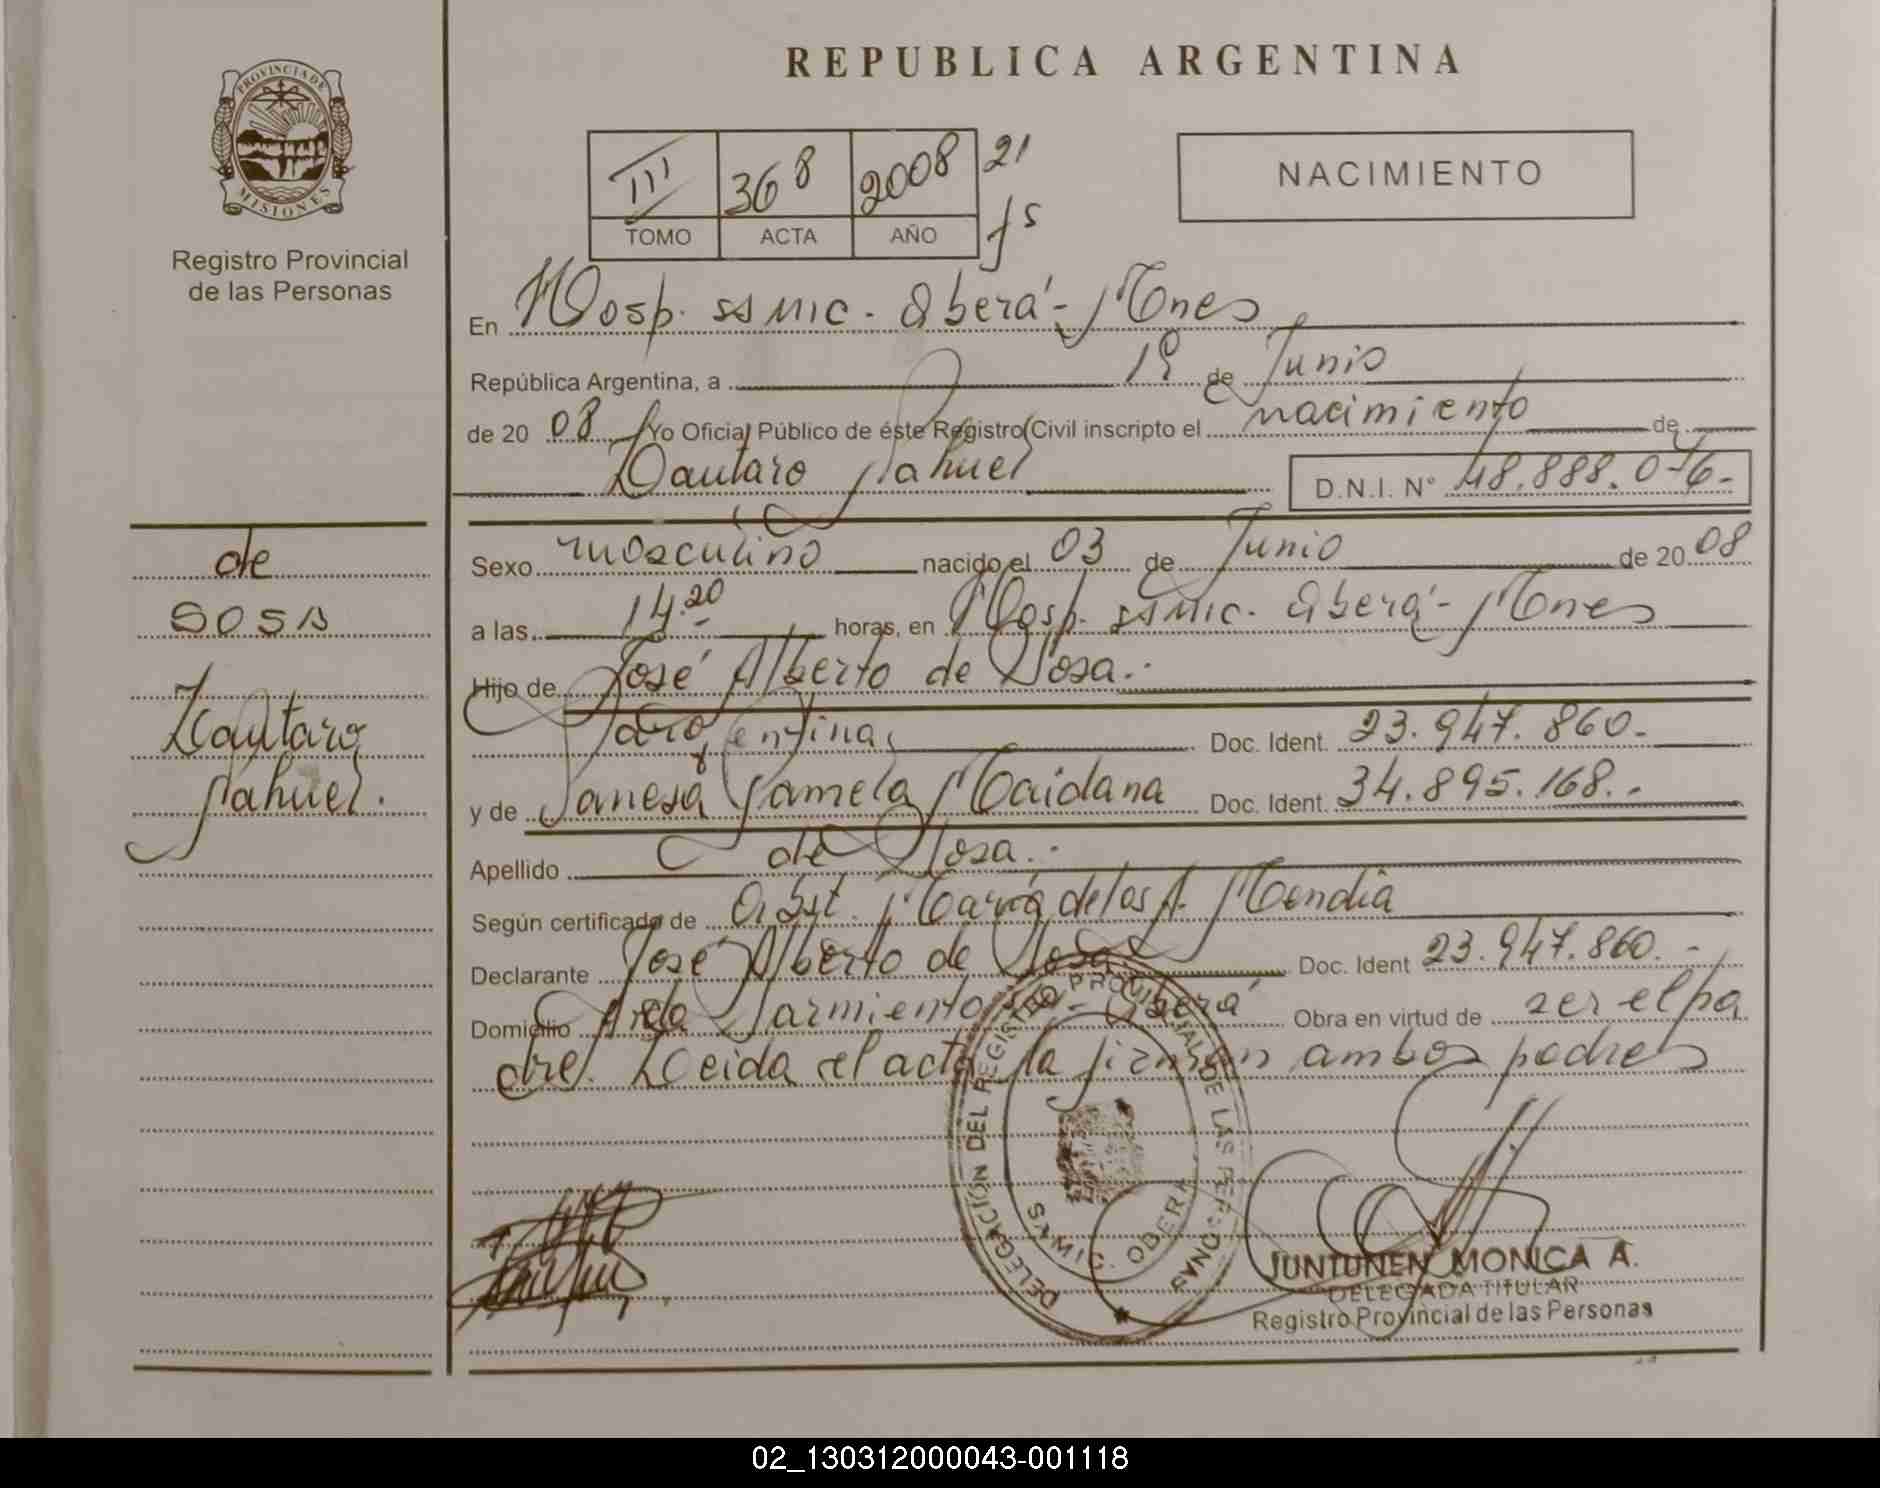 REPUBLICA ARGENTINA
PROVINCIA DE
MISIONES
Registro Provincial
de las Personas
III 368 2008 21
TOMO ACTA AÑO fs
NACIMIENTO
En Hosp. ssmic. Oberá - Mnes
República Argentina, a 19 de Junio
de 20 08 Yo Oficial Público de éste Registro Civil inscripto el nacimiento de
Lautaro Nahuel
D.N.I. N° 48.888.076-
de
SOSA
Lautaro
Nahuel.
Sexo masculino nacido el 03 de Junio de 20 08
a las 14.20 horas, en Hosp. ssmic. Oberá - Mnes
Hijo de José Alberto de Sosa.
Argentina Doc. Ident. 23.947.860-
y de Vanesa Yamela Maidana Doc. Ident. 34.895.168.-
Apellido de Sosa.
Según certificado de Obst. María de los A. Mendia
Declarante José Alberto de Sosa Doc. Ident 23.947.860.-
Domicilio Avda Sarmiento - Oberá Obra en virtud de ser el pa
dre. Leida el acta la firman ambos padres
DELEGACIÓN DEL REGISTRO PROVINCIAL DE LAS PERSONAS
SAMIC. OBERA
JUNTUNEN MONICA A.
DELEGADA TITULAR
Registro Provincial de las Personas
02_130312000043-001118